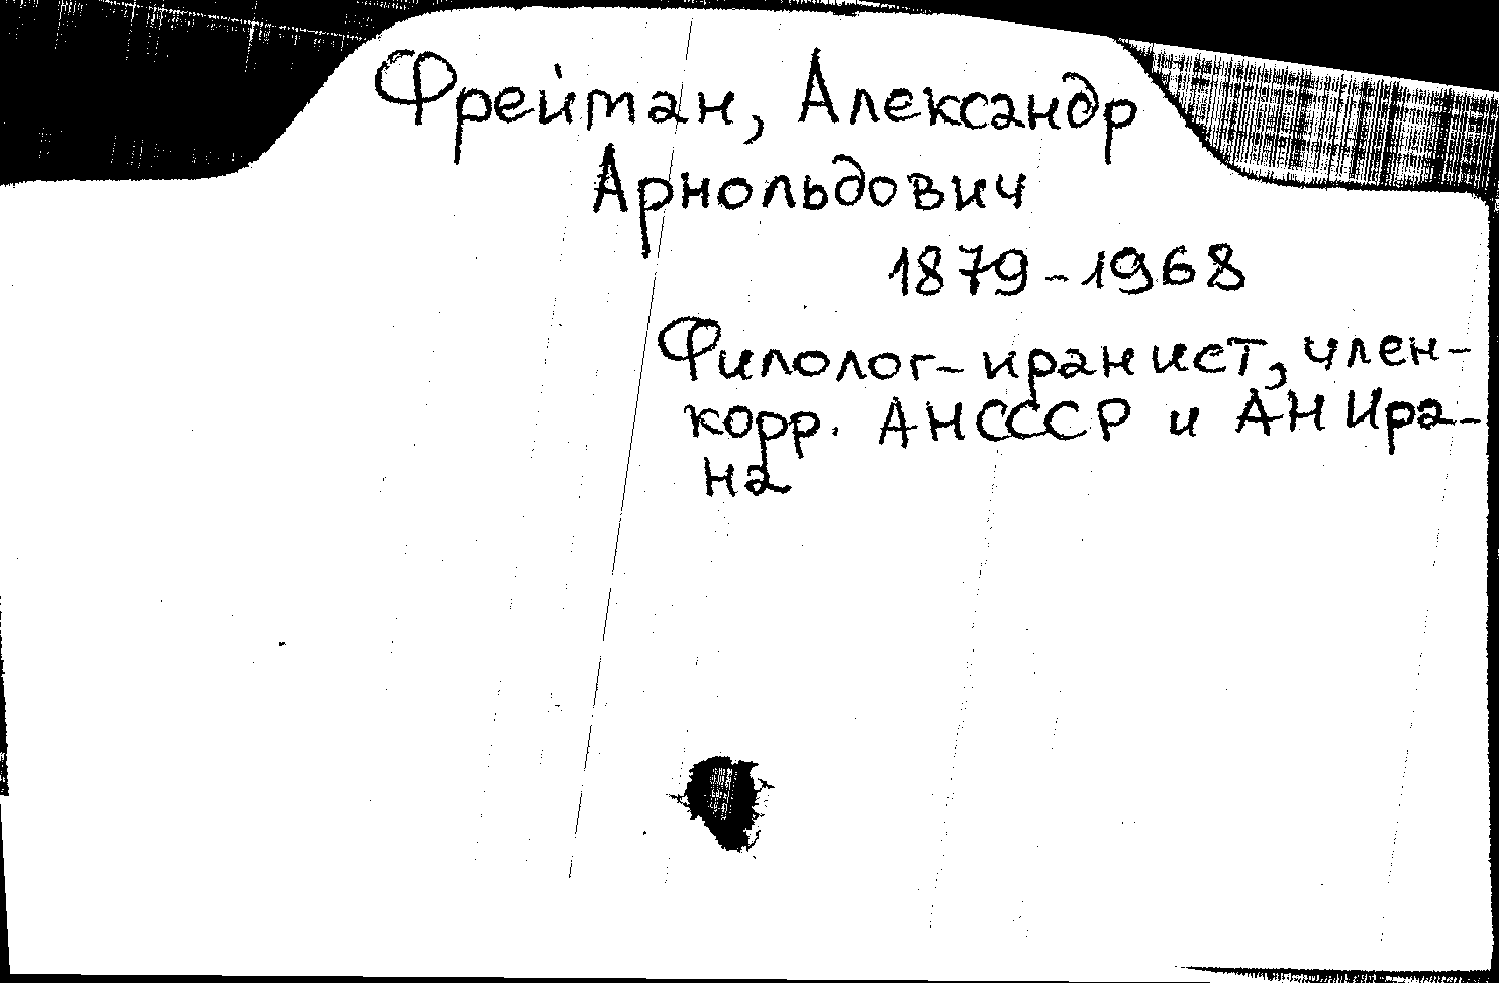 Фрейман, Александр
Арнольдович
1879-1968
Филолог-иранист, член-
корр. АН СССР и АН Ира-
на